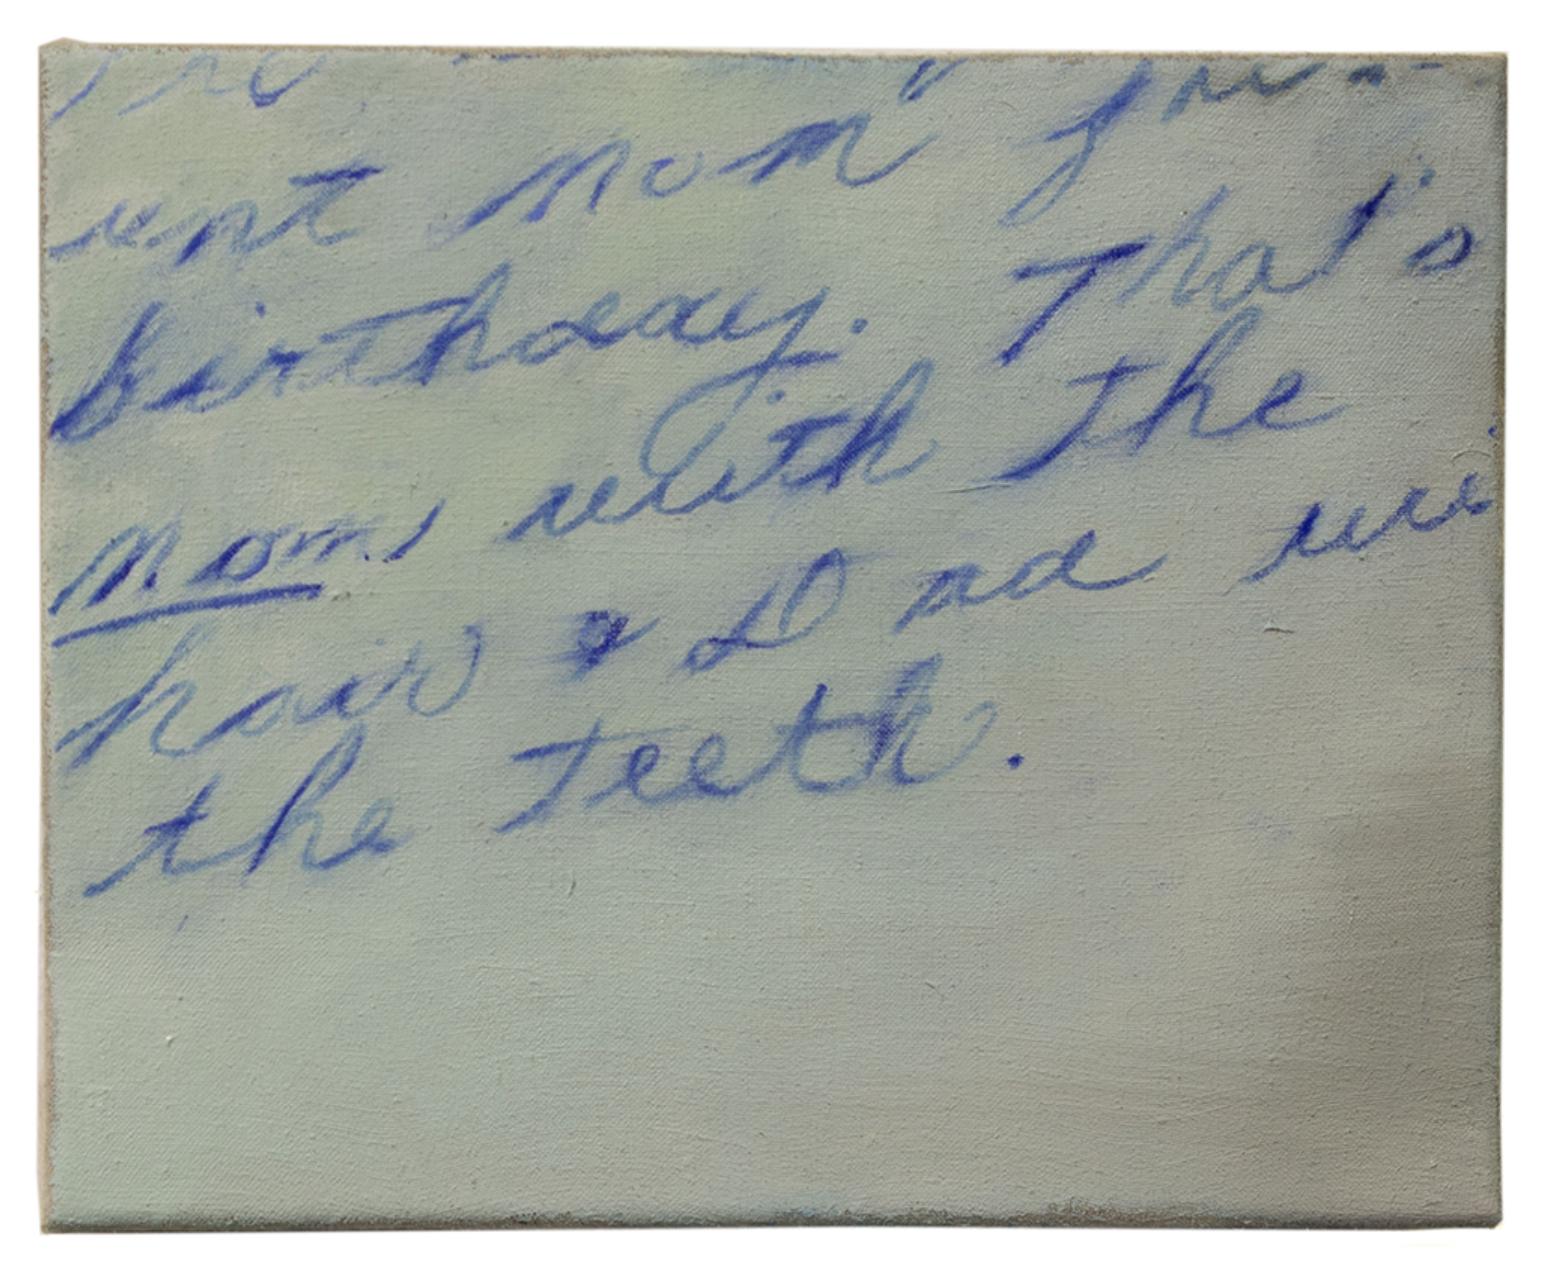 Mom
birthday. That's
Mom, with the
hair & Dad
the teeth.